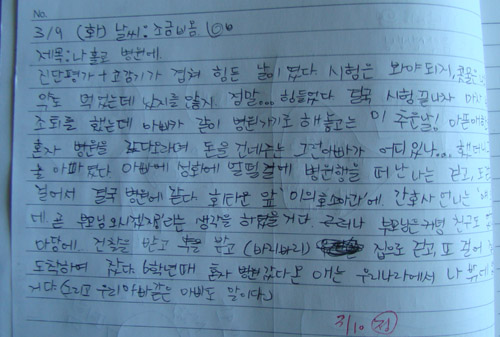 No.
3/9 (화) 날씨: 조금 비옴
제목: 나 홀로 병원에.
진단평가 + 코감기가 겹쳐 힘든 날이였다. 시험은 봐야되지, 콧물은
약도 먹었는데 낫지를 않지. 정말... 힘들었다. 결국 시험 끝나자 마자
조퇴를 했는데 아빠가 같이 병원가기로 해놓고는 이 추운날! 아픈애한
혼자 병원을 갔다오라며 돈을 건네주는 그런아빠가 어디있나... 했더니
아빠였다. 아빠에 성화에 얼떨결에 병원행을 떠난 나는 걷고, 또
걸어서 결국 병원에 갔다. 회타운 앞 '이의효소아과'에. 간호사 언니는
에 곧 부모님 오시겠지'라는 생각을 하였을 거다. 그러나 부모님은커녕 친구도
마당에. 진찰을 받고 약을 받고 (바리바리) 집으로 걷고, 또 걸어
도착하여 잤다. 6학년때 혼자 병원갔다온 애는 우리나라에서 나
거다. (그리고 우리아빠같은 아빠도 말이다.)
3/10